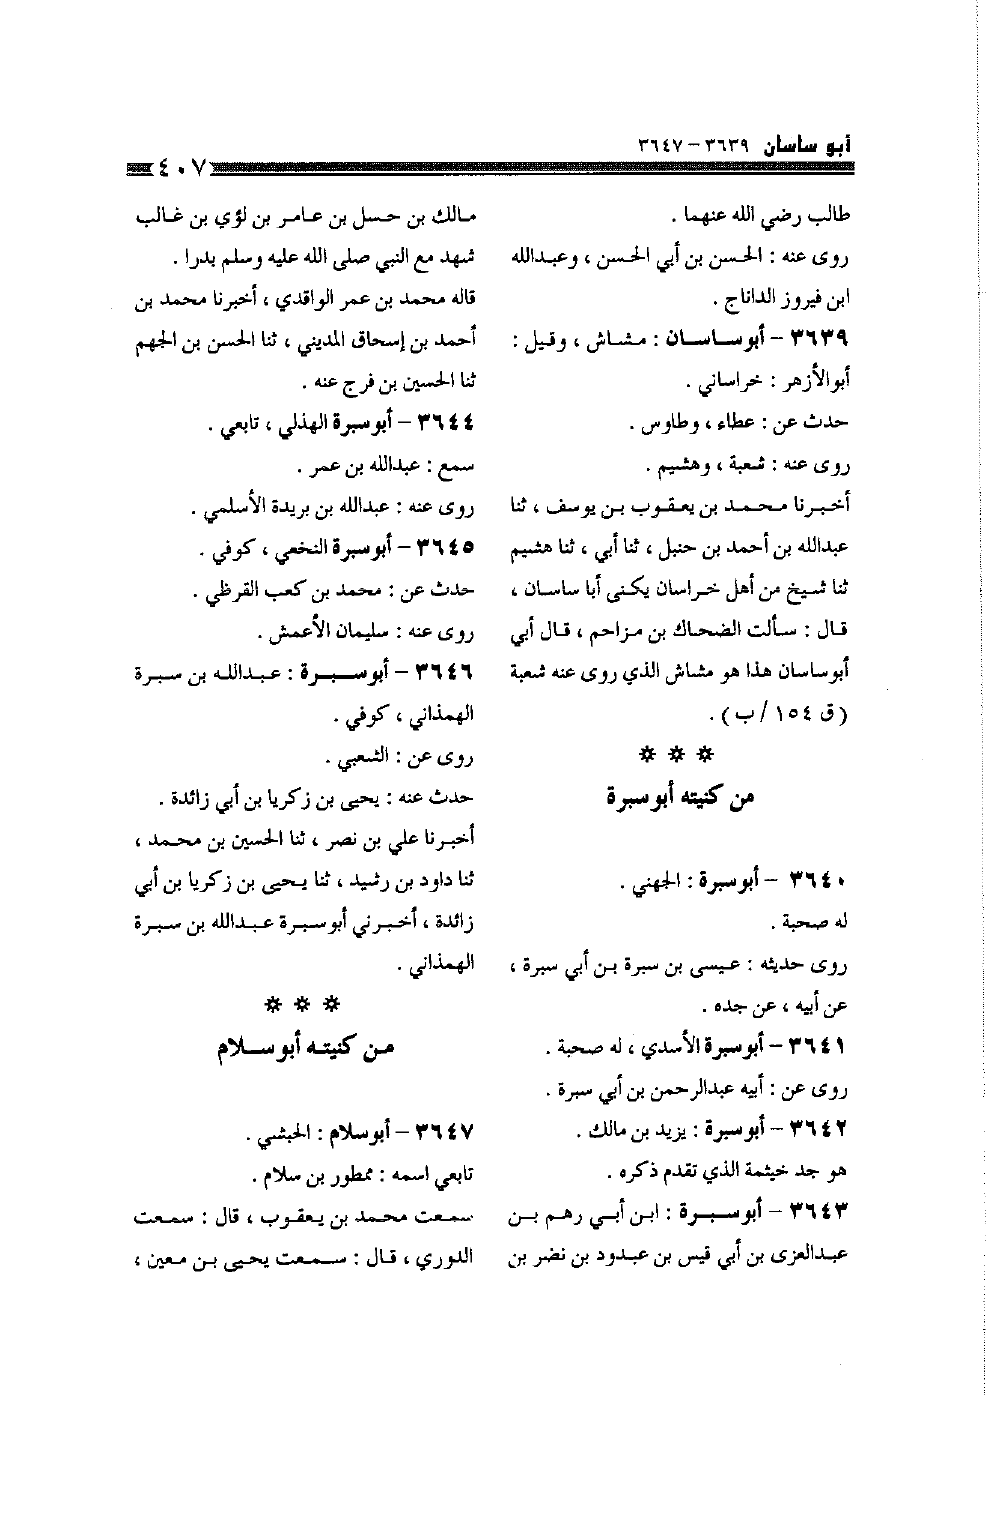 أبو ساسان ٣٦٣٩ – ٣٦٤٧
٤٠٧
طالب رضي الله عنهما .
روى عنه : الحسن بن أبي الحسن ، وعبدالله
ابن فيروز الداناج .
٣٦٣٩ – أبوساسان : مشاش ، وقيل :
أبوالأزهر : خراساني .
حدث عن : عطاء ، وطاوس .
روى عنه : شعبة ، وهشيم .
أخبرنا محمد بن يعقوب بن يوسف ، ثنا
عبدالله بن أحمد بن حنبل ، ثنا أبي ، ثنا هشيم
ثنا شيخ من أهل خراسان يكنى أبا ساسان ،
قال : سألت الضحاك بن مزاحم ، قال أبي
أبوساسان هذا هو مشاش الذي روى عنه شعبة
(ق ١٥٤ /ب) .
* * *
من كنيته أبوسبرة
٣٦٤٠ – أبوسبرة : الجهني .
له صحبة .
روى حديثه : عيسى بن سبرة بن أبي سبرة ،
عن أبيه ، عن جده .
٣٦٤١ – أبوسبرة الأسدي ، له صحبة .
روى عن : أبيه عبدالرحمن بن أبي سبرة .
٣٦٤٢ – أبوسبرة : يزيد بن مالك .
هو جد خيثمة الذي تقدم ذكره .
٣٦٤٣ – أبوسبرة : ابن أبي رهم بن
عبدالعزى بن أبي قيس بن عبدود بن نضر بن
مالك بن حسل بن عامر بن لؤي بن غالب
شهد مع النبي صلى الله عليه وسلم بدرا .
قاله محمد بن عمر الواقدي ، أخبرنا محمد بن
أحمد بن إسحاق المديني ، ثنا الحسن بن الجهم
ثنا الحسين بن فرج عنه .
٣٦٤٤ – أبوسبرة الهذلي ، تابعي .
سمع : عبدالله بن عمر .
روى عنه : عبدالله بن بريدة الأسلمي .
٣٦٤٥ – أبوسبرة النخعي ، كوفي .
حدث عن : محمد بن كعب القرظي .
روى عنه : سليمان الأعمش .
٣٦٤٦ – أبوسبرة : عبدالله بن سبرة
الهمذاني ، كوفي .
روى عن : الشعبي .
حدث عنه : يحيى بن زكريا بن أبي زائدة .
أخبرنا علي بن نصر ، ثنا الحسين بن محمد ،
ثنا داود بن رشيد ، ثنا يحيى بن زكريا بن أبي
زائدة ، أخبرني أبوسبرة عبدالله بن سبرة
الهمذاني .
* * *
من كنيته أبوسلام
٣٦٤٧ – أبوسلام : الحبشي .
تابعي اسمه : ممطور بن سلام .
سمعت محمد بن يعقوب ، قال : سمعت
الدوري ، قال : سمعت يحيى بن معين ،